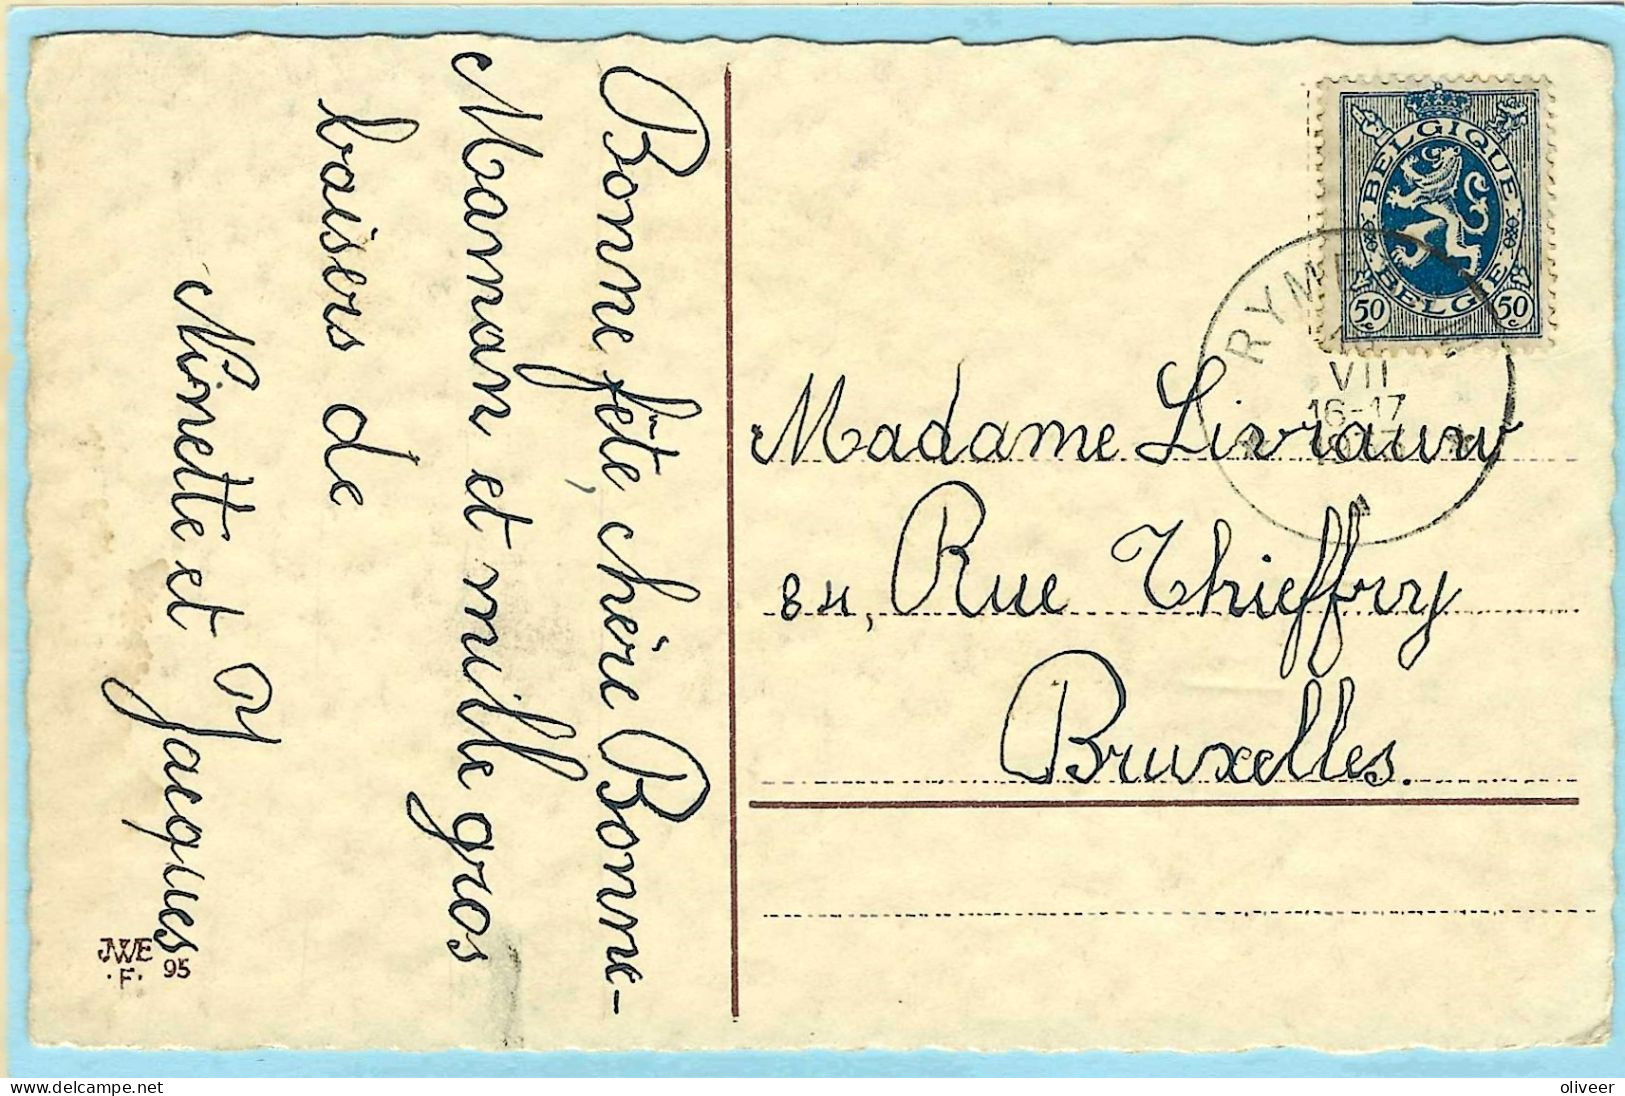 Bonne fête, chère Bonne-
Maman et mille gros
baisers de
Ninette et Jacques
JWE
.F. 95
BELGIQUE
BELGIE
50 c
50 c
VII
16-17
Madame Livrauw
84, Rue Thieffry
Bruxelles.
delcampe.net
oliveer